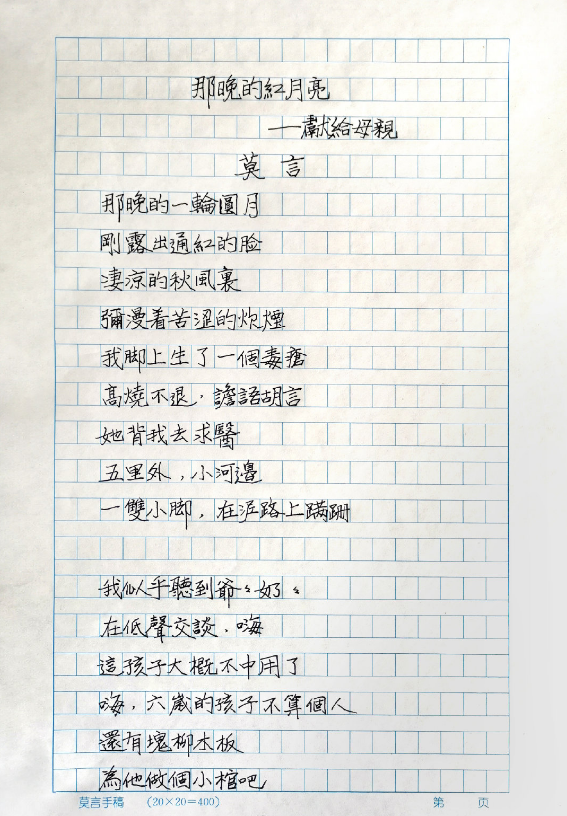 那晚的紅月亮
——獻給母親
莫言
那晚的一輪圓月
剛露出通紅的脸
淒涼的秋風裏
彌漫着苦澀的炊煙
我脚上生了一個毒瘡
高燒不退，譫語胡言
她背我去求醫
五里外，小河邊
一雙小脚，在泥路上蹒跚
我似乎聽到爺々奶々
在低聲交談，嗨
這孩子大概不中用了
嗨，六歲的孩子不算個人
還有塊柳木板
為他做個小棺吧
莫言手稿 (20×20=400) 第 页